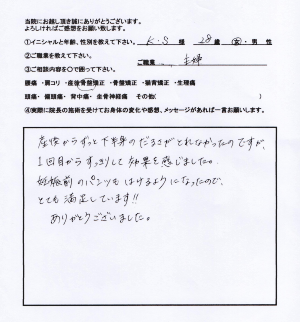 当院にお越し頂き誠にありがとうございます。
よろしければご感想をお願い致します。
①イニシャルと年齢、性別を教えて下さい。 K・S 様 28歳 女・男 性
②ご職業を教えて下さい。 ご職業 主婦
③ご相談内容を○で囲って下さい。
腰痛・肩コリ・産後骨盤矯正・骨盤矯正・猫背矯正・生理痛
頭痛・偏頭痛・背中痛・坐骨神経痛 その他( )
④実際に院長の施術を受けてお身体の変化や感想、メッセージがあれば一言お願いします。
産後からずっと下半身のだるさがとれなかったのですが、
1回目からすっきりして効果を感じました。
妊娠前のパンツもはけるようになったので、
とても満足しています!!
ありがとうございました。